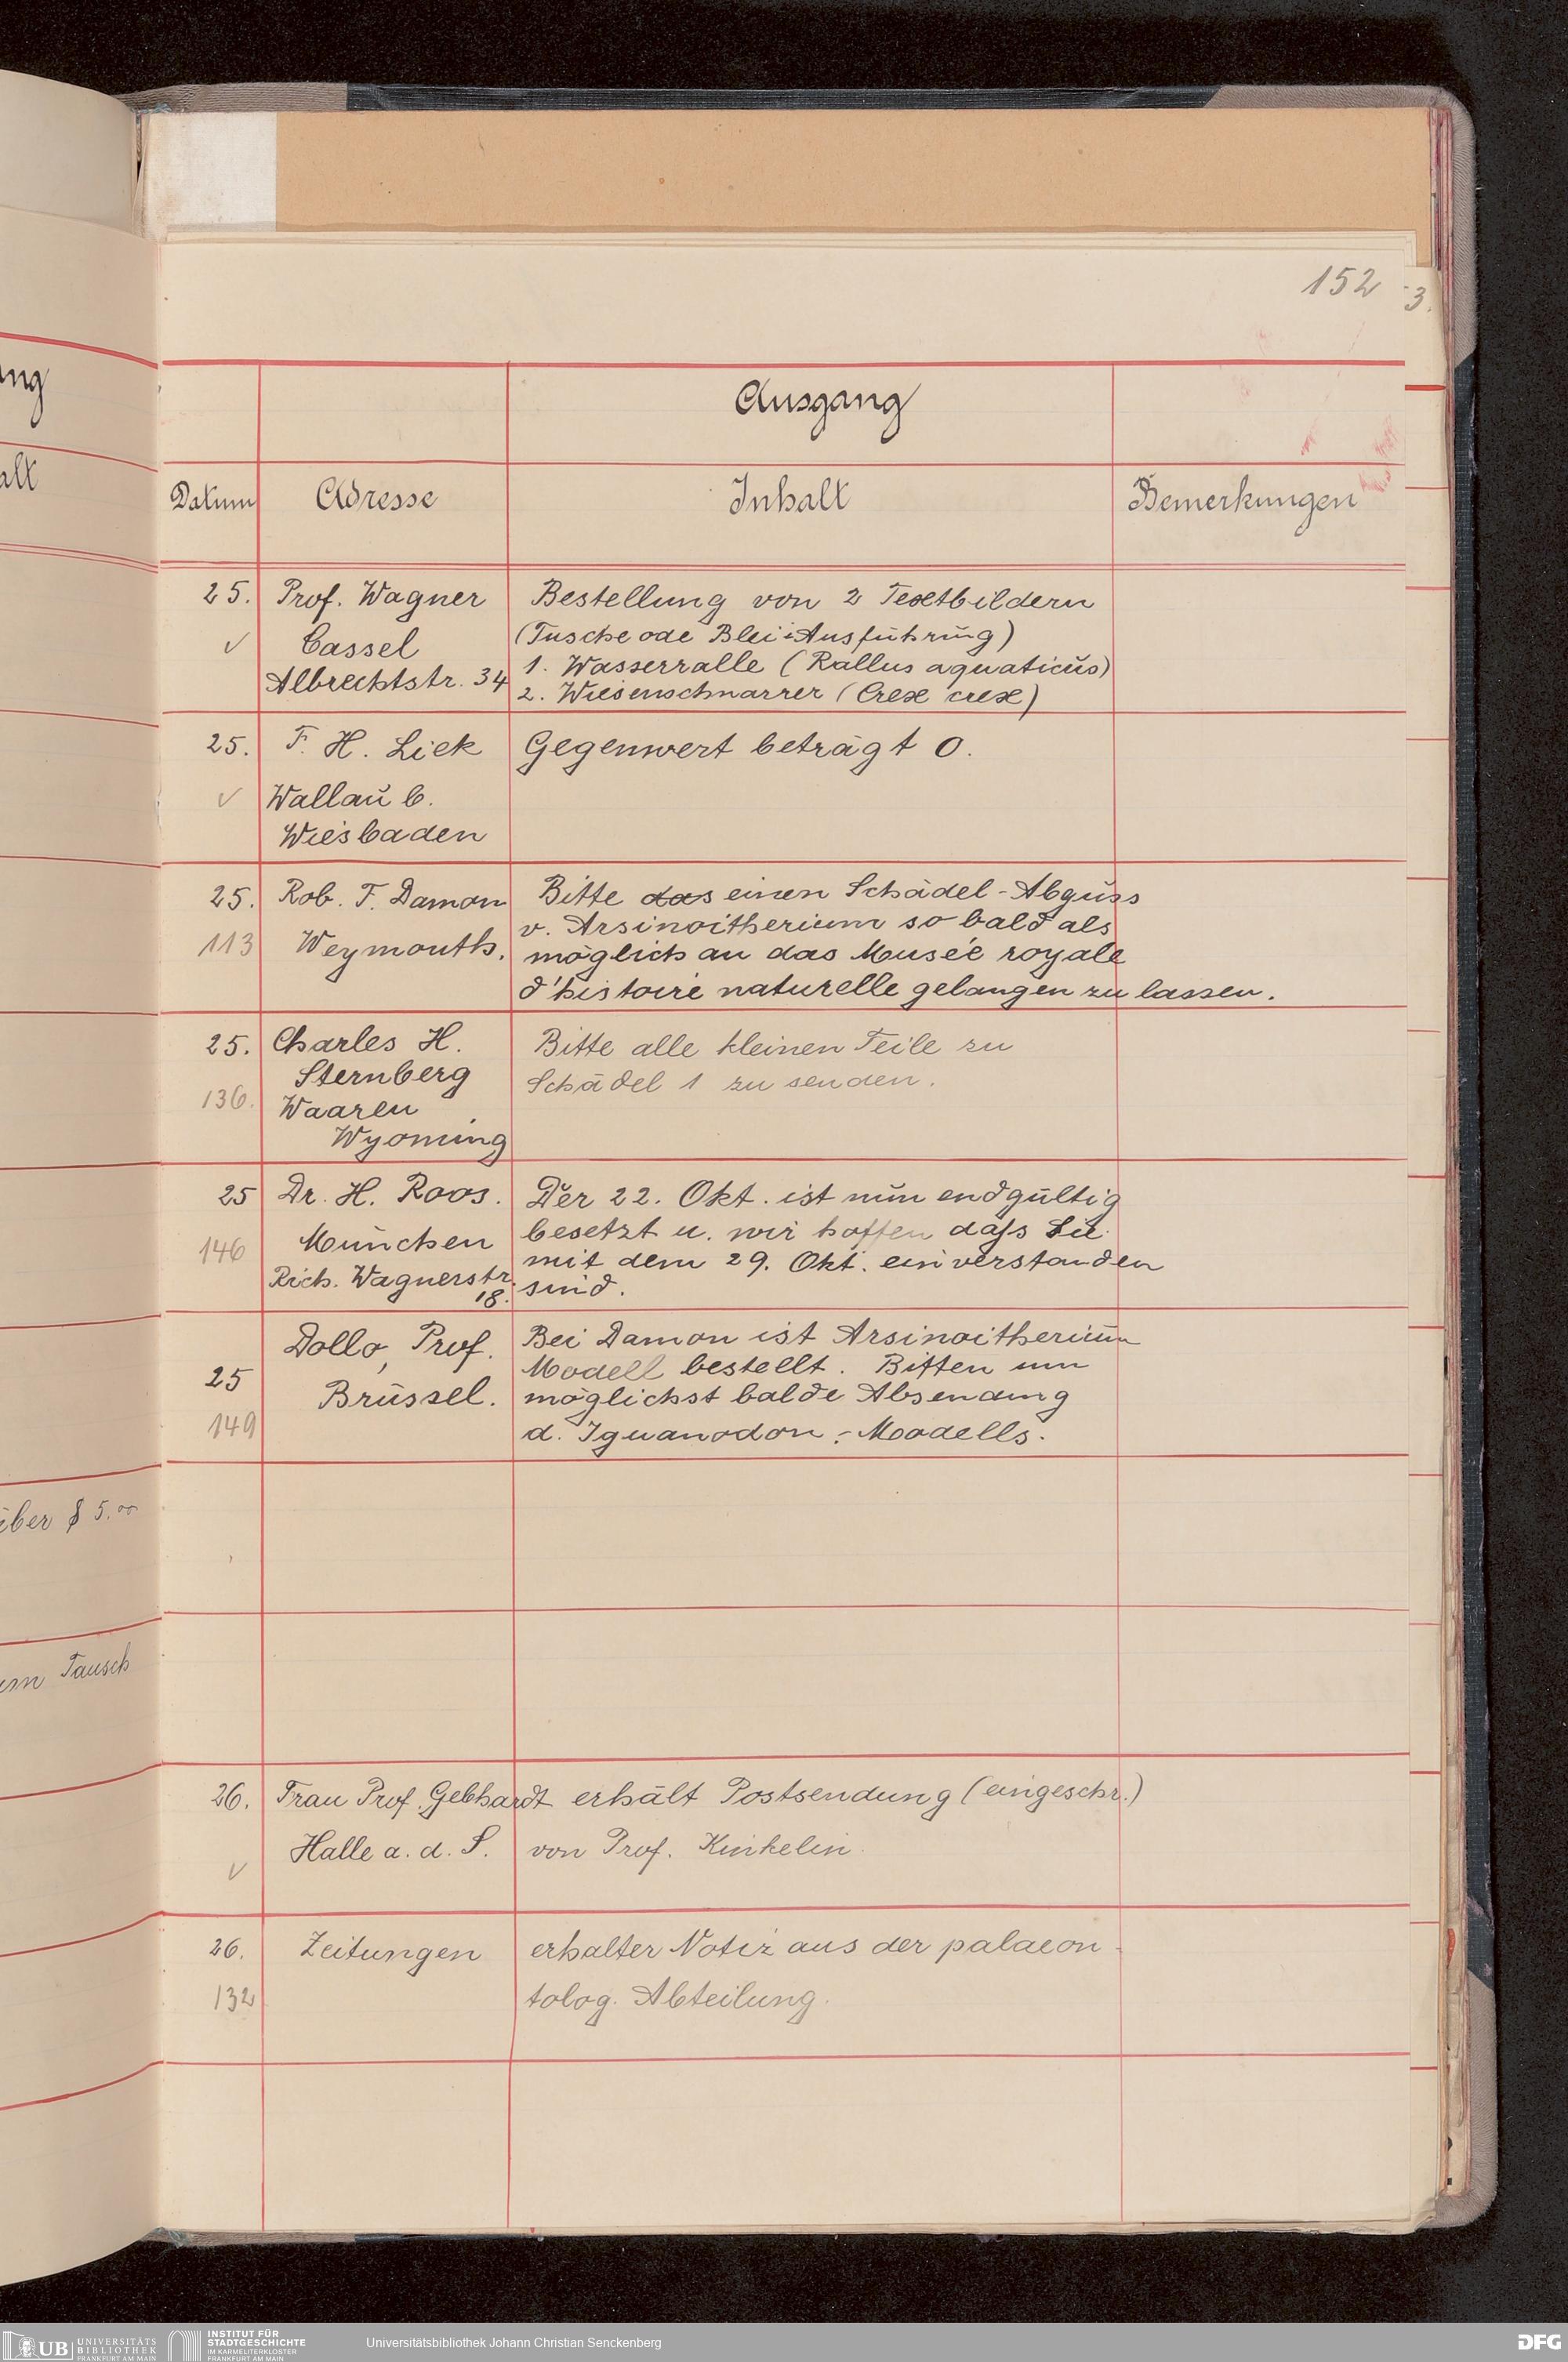 152
3.
ang
alt
über $ 5.00
Tausch
Ausgang
Datum Adresse Inhalt Bemerkungen
25. Prof. Wagner Bestellung von 2 Textbildern
✓ Cassel (Tusche ode Blei-Ausführung)
Albrechtstr. 34 1. Wasserralle (Rallus aquaticus)
2. Wiesenschnarrer (Crex crex)
25. F. H. Liek Gegenwert beträgt 0.
✓ Wallau b.
Wiesbaden
25. Rob. F. Damon Bitte das einen Schädel-Abguss
v. Arsinoitherium so bald als
113 Weymouth. möglich an das Musée royale
d'histoire naturelle gelangen zu lassen.
25. Charles H. Bitte alle kleinen Teile zu
Sternberg Schädel 1 zu senden.
136. Waaren
Wyoming
25 Dr. H. Roos. Der 22. Okt. ist nun endgültig
146 München besetzt u. wir hoffen dass Sie
Rich. Wagnerstr. mit dem 29. Okt. einverstanden
18. sind.
Dollo, Prof. Bei Damon ist Arsinoitherium
25 Modell bestellt. Bitten um
Brüssel. möglichst balde Absendung
149 d. Iguanodon-Moodells.
26. Frau Prof. Gebhardt erhält Postsendung (eingeschr.)
✓ Halle a. d. S. von Prof. Kinkelin.
26. Zeitungen erhalter Notiz aus der palaeon-
132 tolog. Abteilung.
UB UNIVERSITÄTS
BIBLIOTHEK
FRANKFURT AM MAIN
INSTITUT FÜR
STADTGESCHICHTE
IM KARMELITERKLOSTER
FRANKFURT AM MAIN
Universitätsbibliothek Johann Christian Senckenberg
DFG